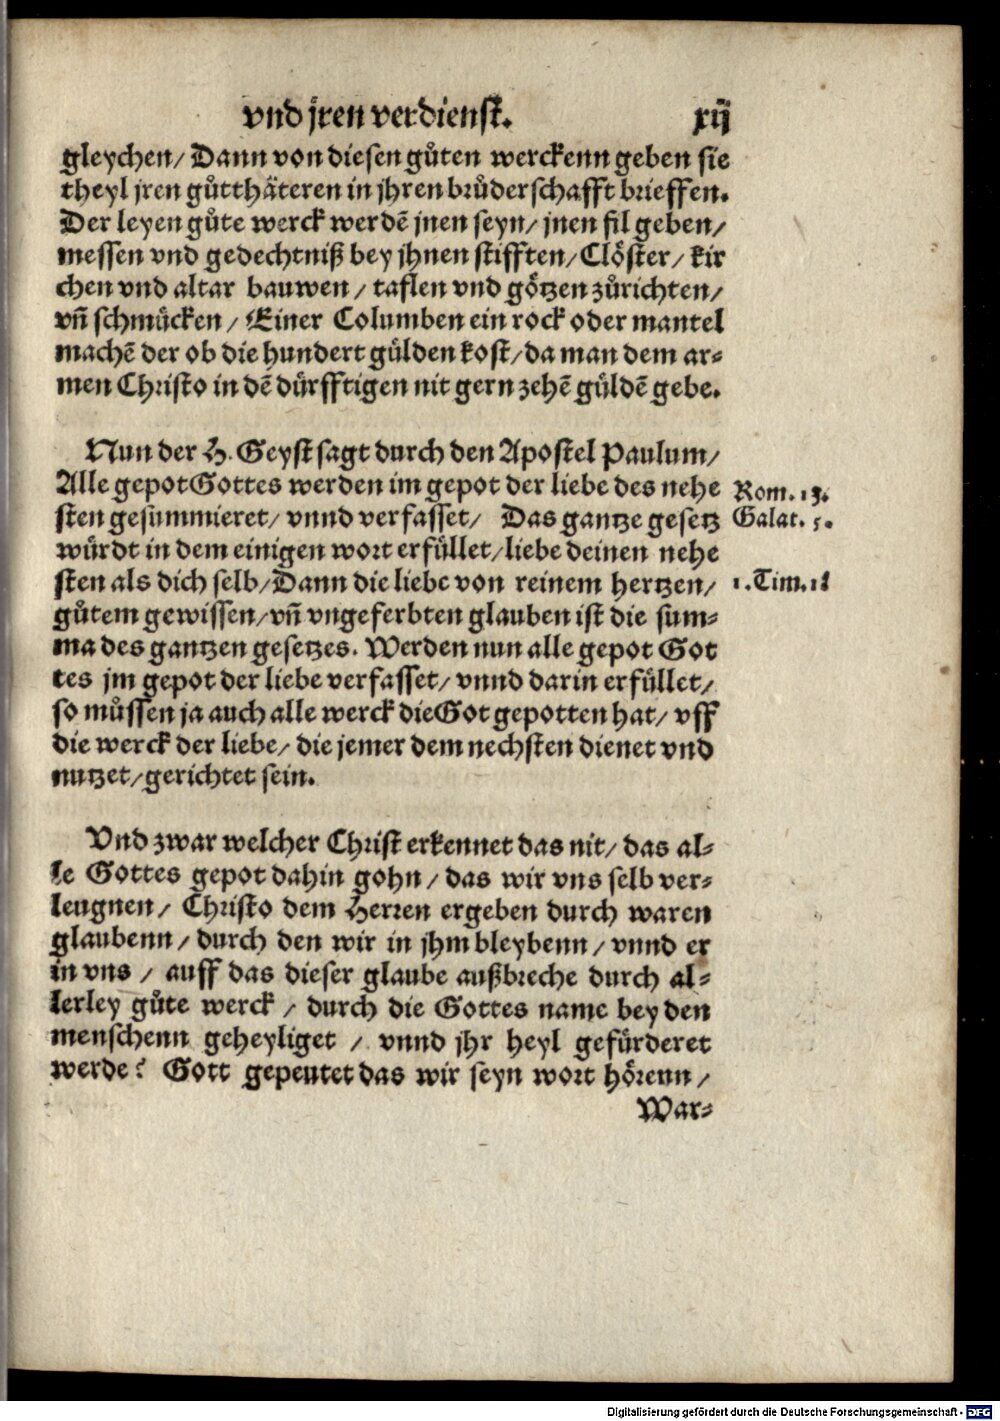 vnd jren verdienst. xij
gleychen/ Dann von diesen gůten werckenn geben sie
theyl jren gůtthäteren in jhren brůderschafft brieffen.
Der leyen gůte werck werdē jnen seyn/ jnen fil geben/
messen vnd gedechtniß bey jhnen stifften/ Clöster/ kir
chen vnd altar bauwen/ taflen vnd götzen zůrichten/
vñ schmücken/ Einer Columben ein rock oder mantel
machē der ob die hundert gülden kost/ da man dem ar⸗
men Christo in dē dürfftigen nit gern zehē güldē gebe.
Nun der H. Geyst sagt durch den Apostel Paulum/
Alle gepot Gottes werden im gepot der liebe des nehe
Rom. 13.
sten gesummieret/ vnnd verfasset/ Das gantze gesetz
Galat. 5.
würdt in dem einigen wort erfüllet/ liebe deinen nehe
sten als dich selb/ Dann die liebe von reinem hertzen/
1. Tim. 1
gůtem gewissen/ vñ vngeferbten glauben ist die sum⸗
ma des gantzen gesetzes. Werden nun alle gepot Got
tes jm gepot der liebe verfasset/ vnnd darin erfüllet/
so müssen ja auch alle werck die Got gepotten hat/ vff
die werck der liebe/ die jemer dem nechsten dienet vnd
nutzet/ gerichtet sein.
Vnd zwar welcher Christ erkennet das nit/ das al⸗
le Gottes gepot dahin gohn/ das wir vns selb ver⸗
leugnen/ Christo dem Herren ergeben durch waren
glaubenn/ durch den wir in jhm bleybenn/ vnnd er
in vns/ auff das dieser glaube außbreche durch al⸗
lerley gůte werck/ durch die Gottes name bey den
menschenn geheyliget/ vnnd jhr heyl gefürderet
werde? Gott gepeutet das wir seyn wort hörenn/
War⸗
Digitalisierung gefördert durch die Deutsche Forschungsgemeinschaft - DFG